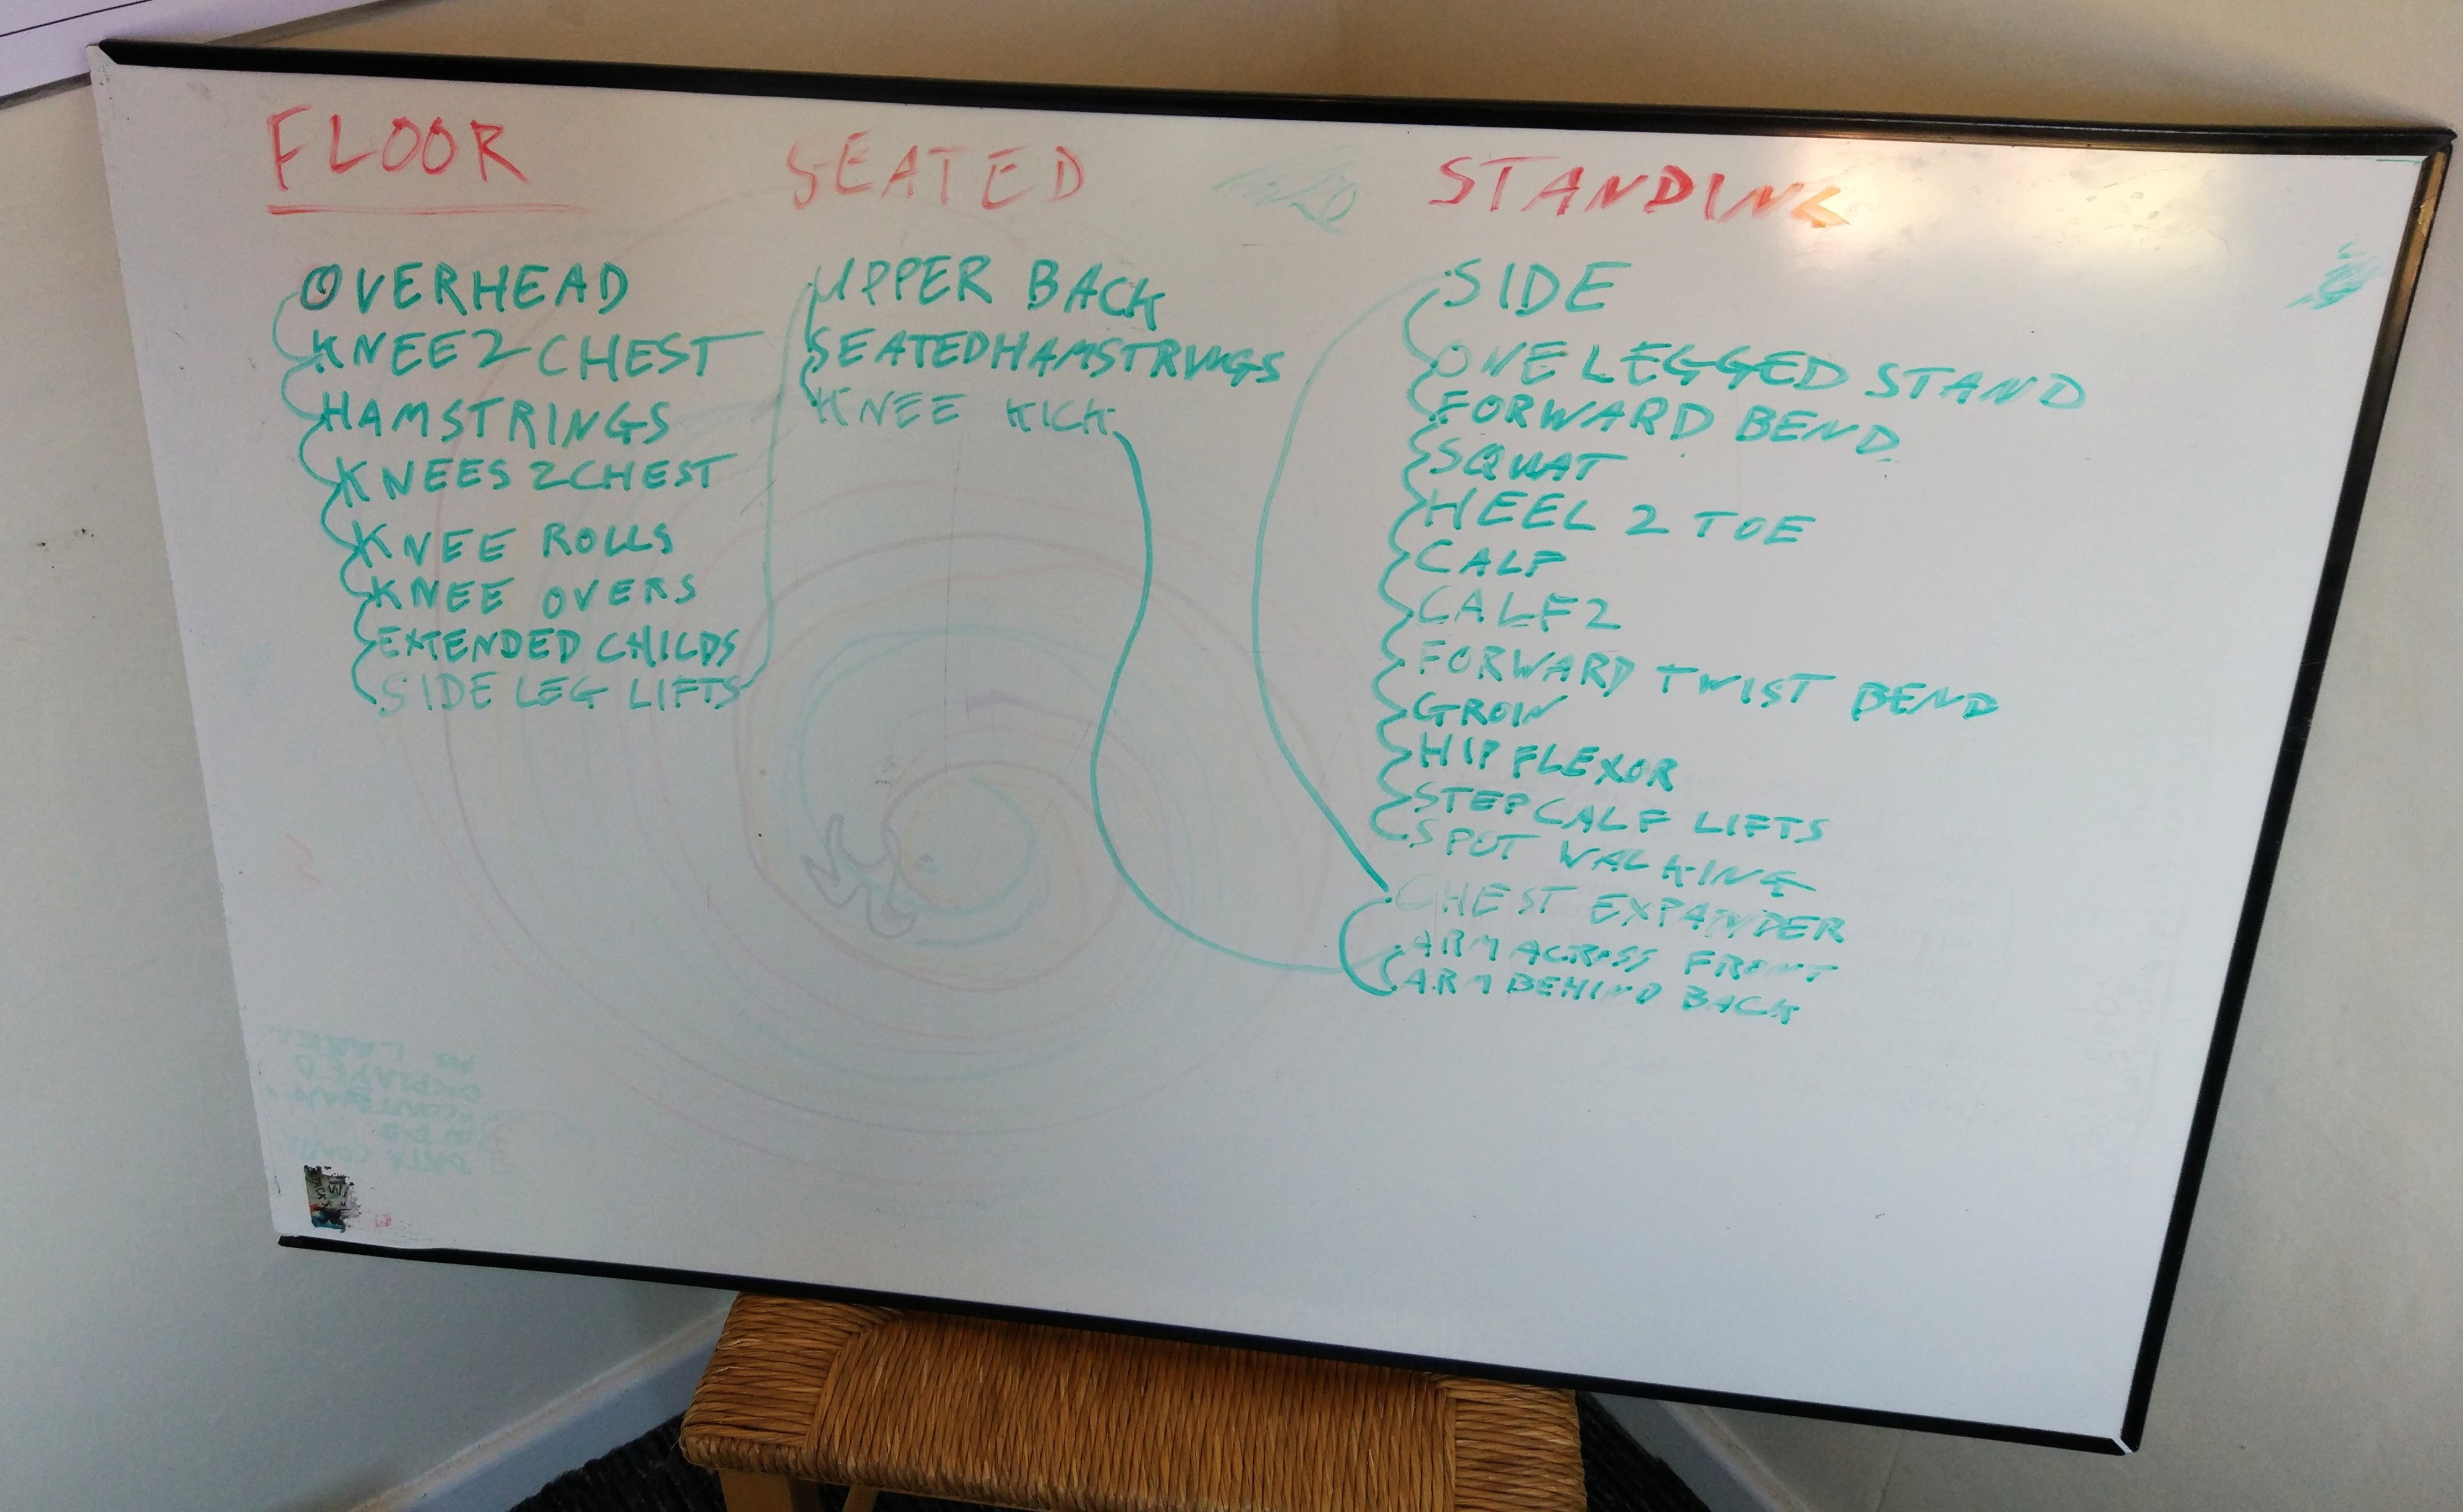 FLOOR
OVERHEAD
KNEE 2 CHEST
HAMSTRINGS
KNEES 2 CHEST
KNEE ROLLS
KNEE OVERS
EXTENDED CHILDS
SIDE LEG LIFTS
SEATED
UPPER BACK
SEATED HAMSTRINGS
KNEE KICK
STANDING
SIDE
ONE LEGGED STAND
FORWARD BEND
SQUAT
HEEL 2 TOE
CALF
CALF 2
FORWARD TWIST BEND
GROIN
HIP FLEXOR
STEP CALF LIFTS
SPOT WALKING
CHEST EXPANDER
ARM ACROSS FRONT
ARM BEHIND BACK